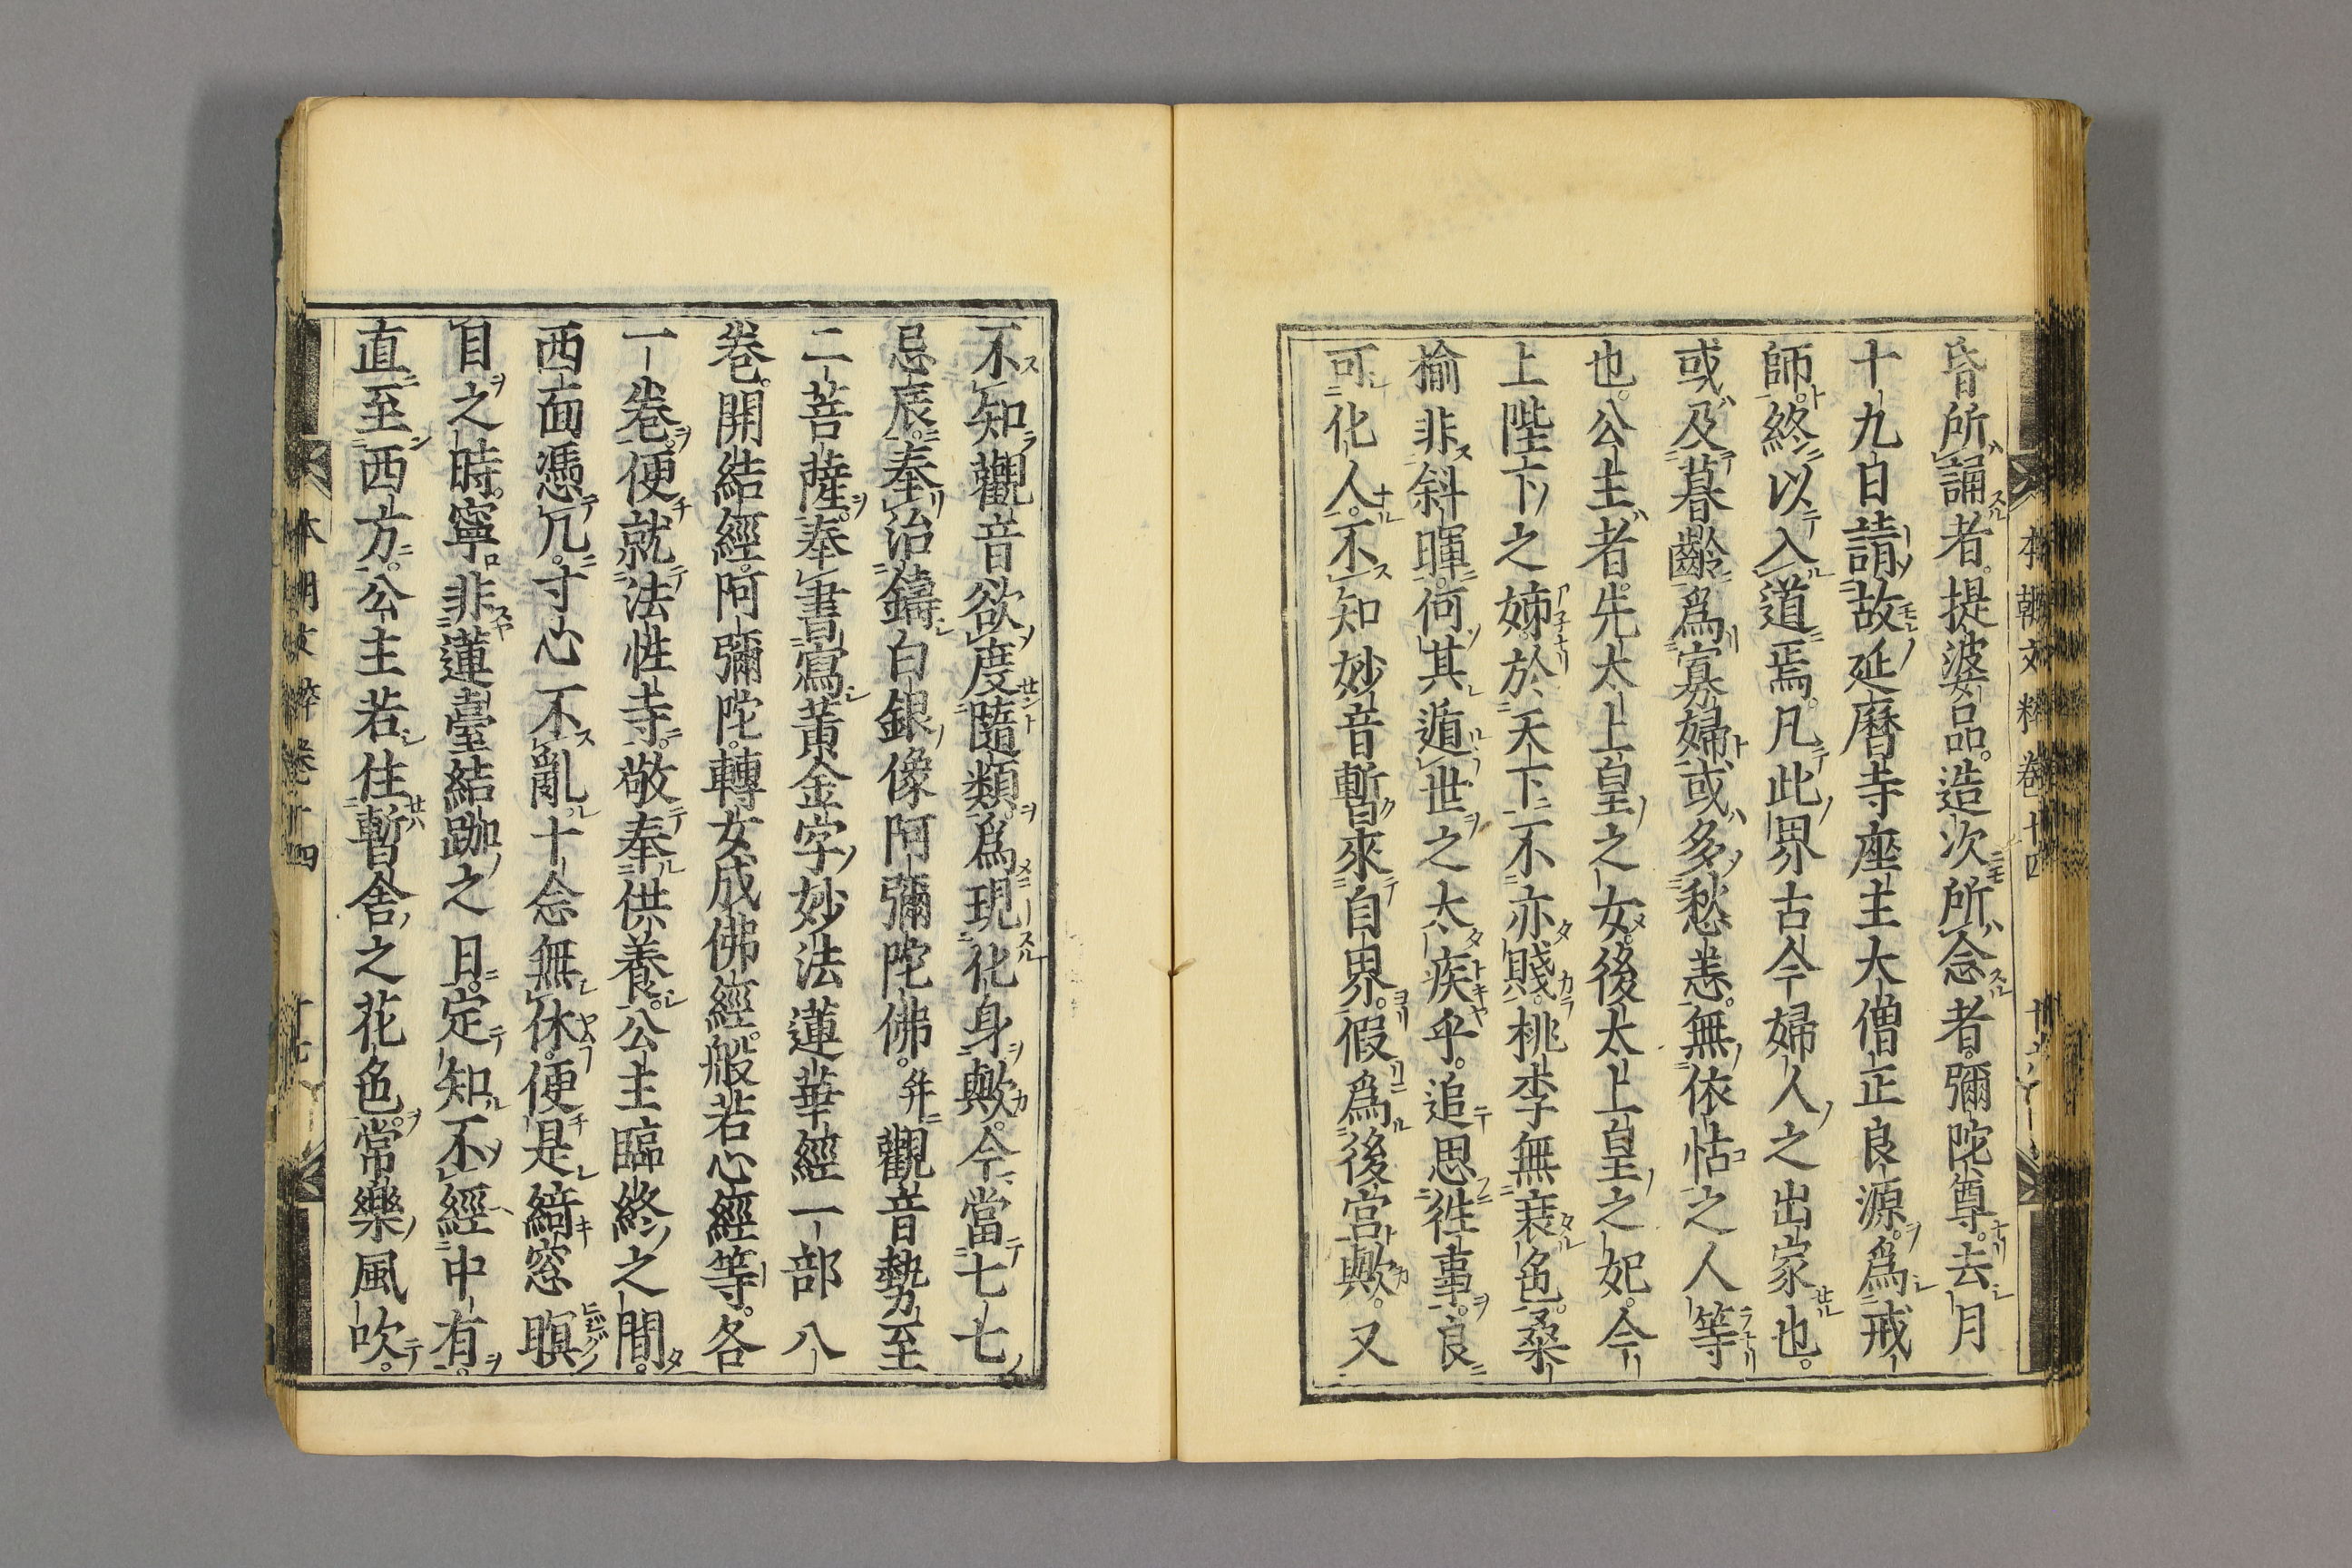 昏所誦者。提婆品。造次所念者。彌陀尊。去月
十九日請故延曆寺座主大僧正良源。爲戒
師。終以入道焉。凡此界古今婦人之出家也。
或及暮齡爲寡婦或多愁恙。無依怙之人等
也。公主者。先太上皇之女。後太上皇之妃。今
上陛下之姊。於天下不亦賤。桃李無衰色。桑
榆非斜暉。何其遁世之太疾乎。追思徃事。良
可化人。不知妙音暫來自界。假爲後宮歟。又
不知觀音欲度隨類。爲現化身歟。今當七七
忌辰。奉治鑄白銀像阿彌陀佛。幷觀音勢至
二菩薩。奉書寫黃金字妙法蓮華經一部八
卷。開結經。阿彌陀。轉女成佛經。般若心經等。各
一卷。便就法性寺。敬奉供養。公主臨終之間。
西面憑几。寸心不亂。十念無休。便是綺窓瞑
目之時。寧非蓮臺結跏之日。定知不經中有。
直至西方。公主若住暫舍之花色。常樂風吹。
本朝文粹卷十四
本朝文粹卷十四